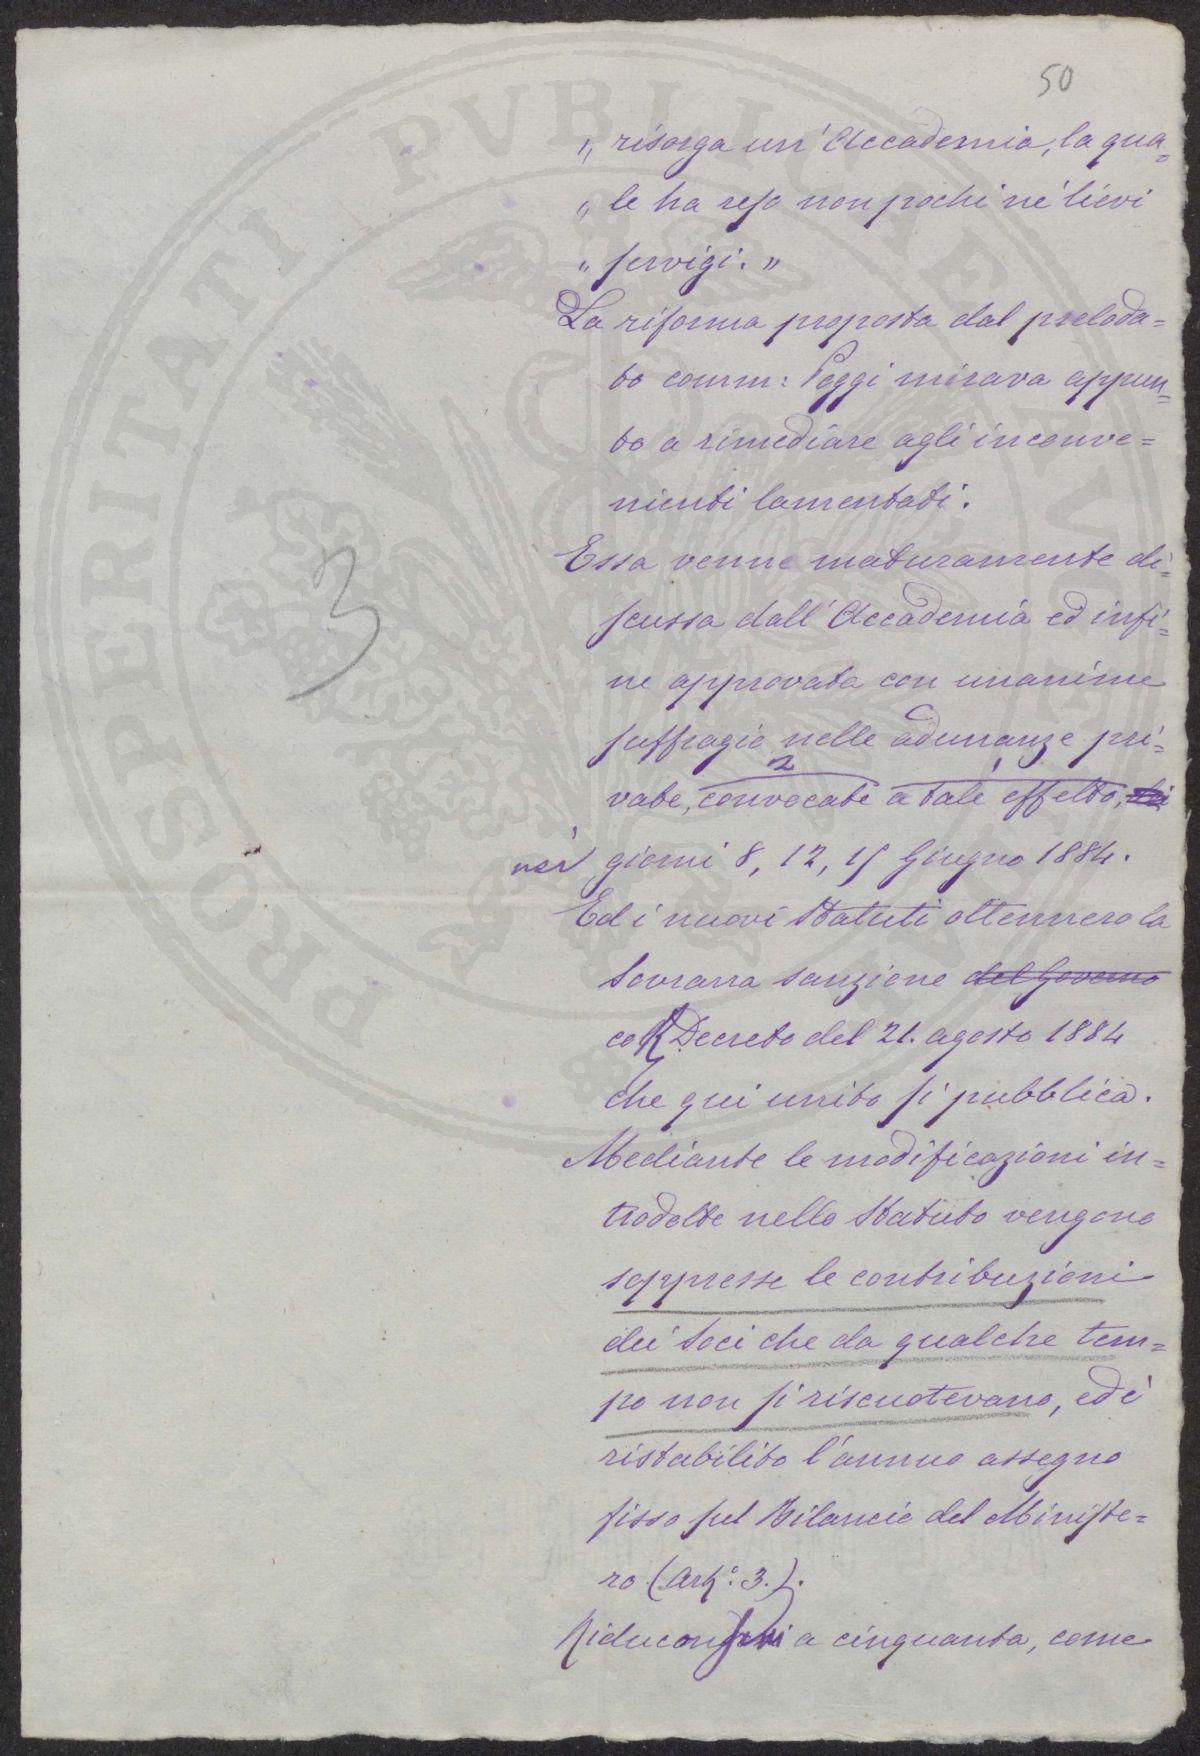 50
„ risorga un' Accademia, la qua=
„ le ha reso non pochi nè lievi
„ servigi. „
La riforma proposta dal preloda=
to comm: Poggi mirava appun=
to a rimediare agli inconve=
nienti lamentati.
Essa venne maturamente di=
scussa dall' Accademia ed infi=
ne approvata con unanime
suffragio nelle adunanze pri=
2 1
vate, convocate a tale effetto,
nei giorni 8, 12, 15 Giugno 1884.
Ed i nuovi Statuti ottennero la
Sovrana sanzione del Governo
col R. Decreto del 21. agosto 1884
che qui unito si pubblica.
Mediante le modificazioni in=
trodotte nello Statuto vengono
soppresse le contribuzioni
dei Soci che da qualche tem=
po non si riscuotevano, ed è
ristabilito l'annuo assegno
fisso sul Bilancio del Ministe=
ro (Art.º 3.).
Riduconsi a cinquanta, come
3
PROSPERITATI PVBLICAE AVGENDAE